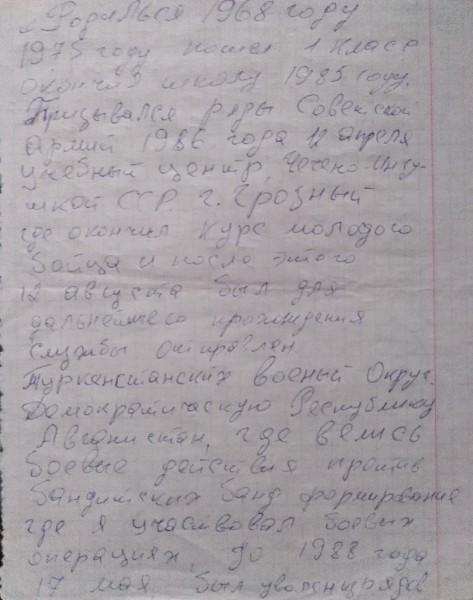 Родился 1968 году
1975 году пошел 1 класс
окончил школу 1985 году.
Призывался ряды Советской
армий 1986 года 12 апреля
учебный центр, Чечено-Ингу-
шкой ССР. г. Грозный
где окончил курс молодого
бойца и после этого
12 августа был для
дальнейшего прохождения
службы отправлен
Туркенстанских военый Округ.
Демократическую Республику
Авганистан, где велись
боевые действия против
бандитских банд формирование
где я участвовал боевых
операциях, до 1988 года
17 мая был уволен